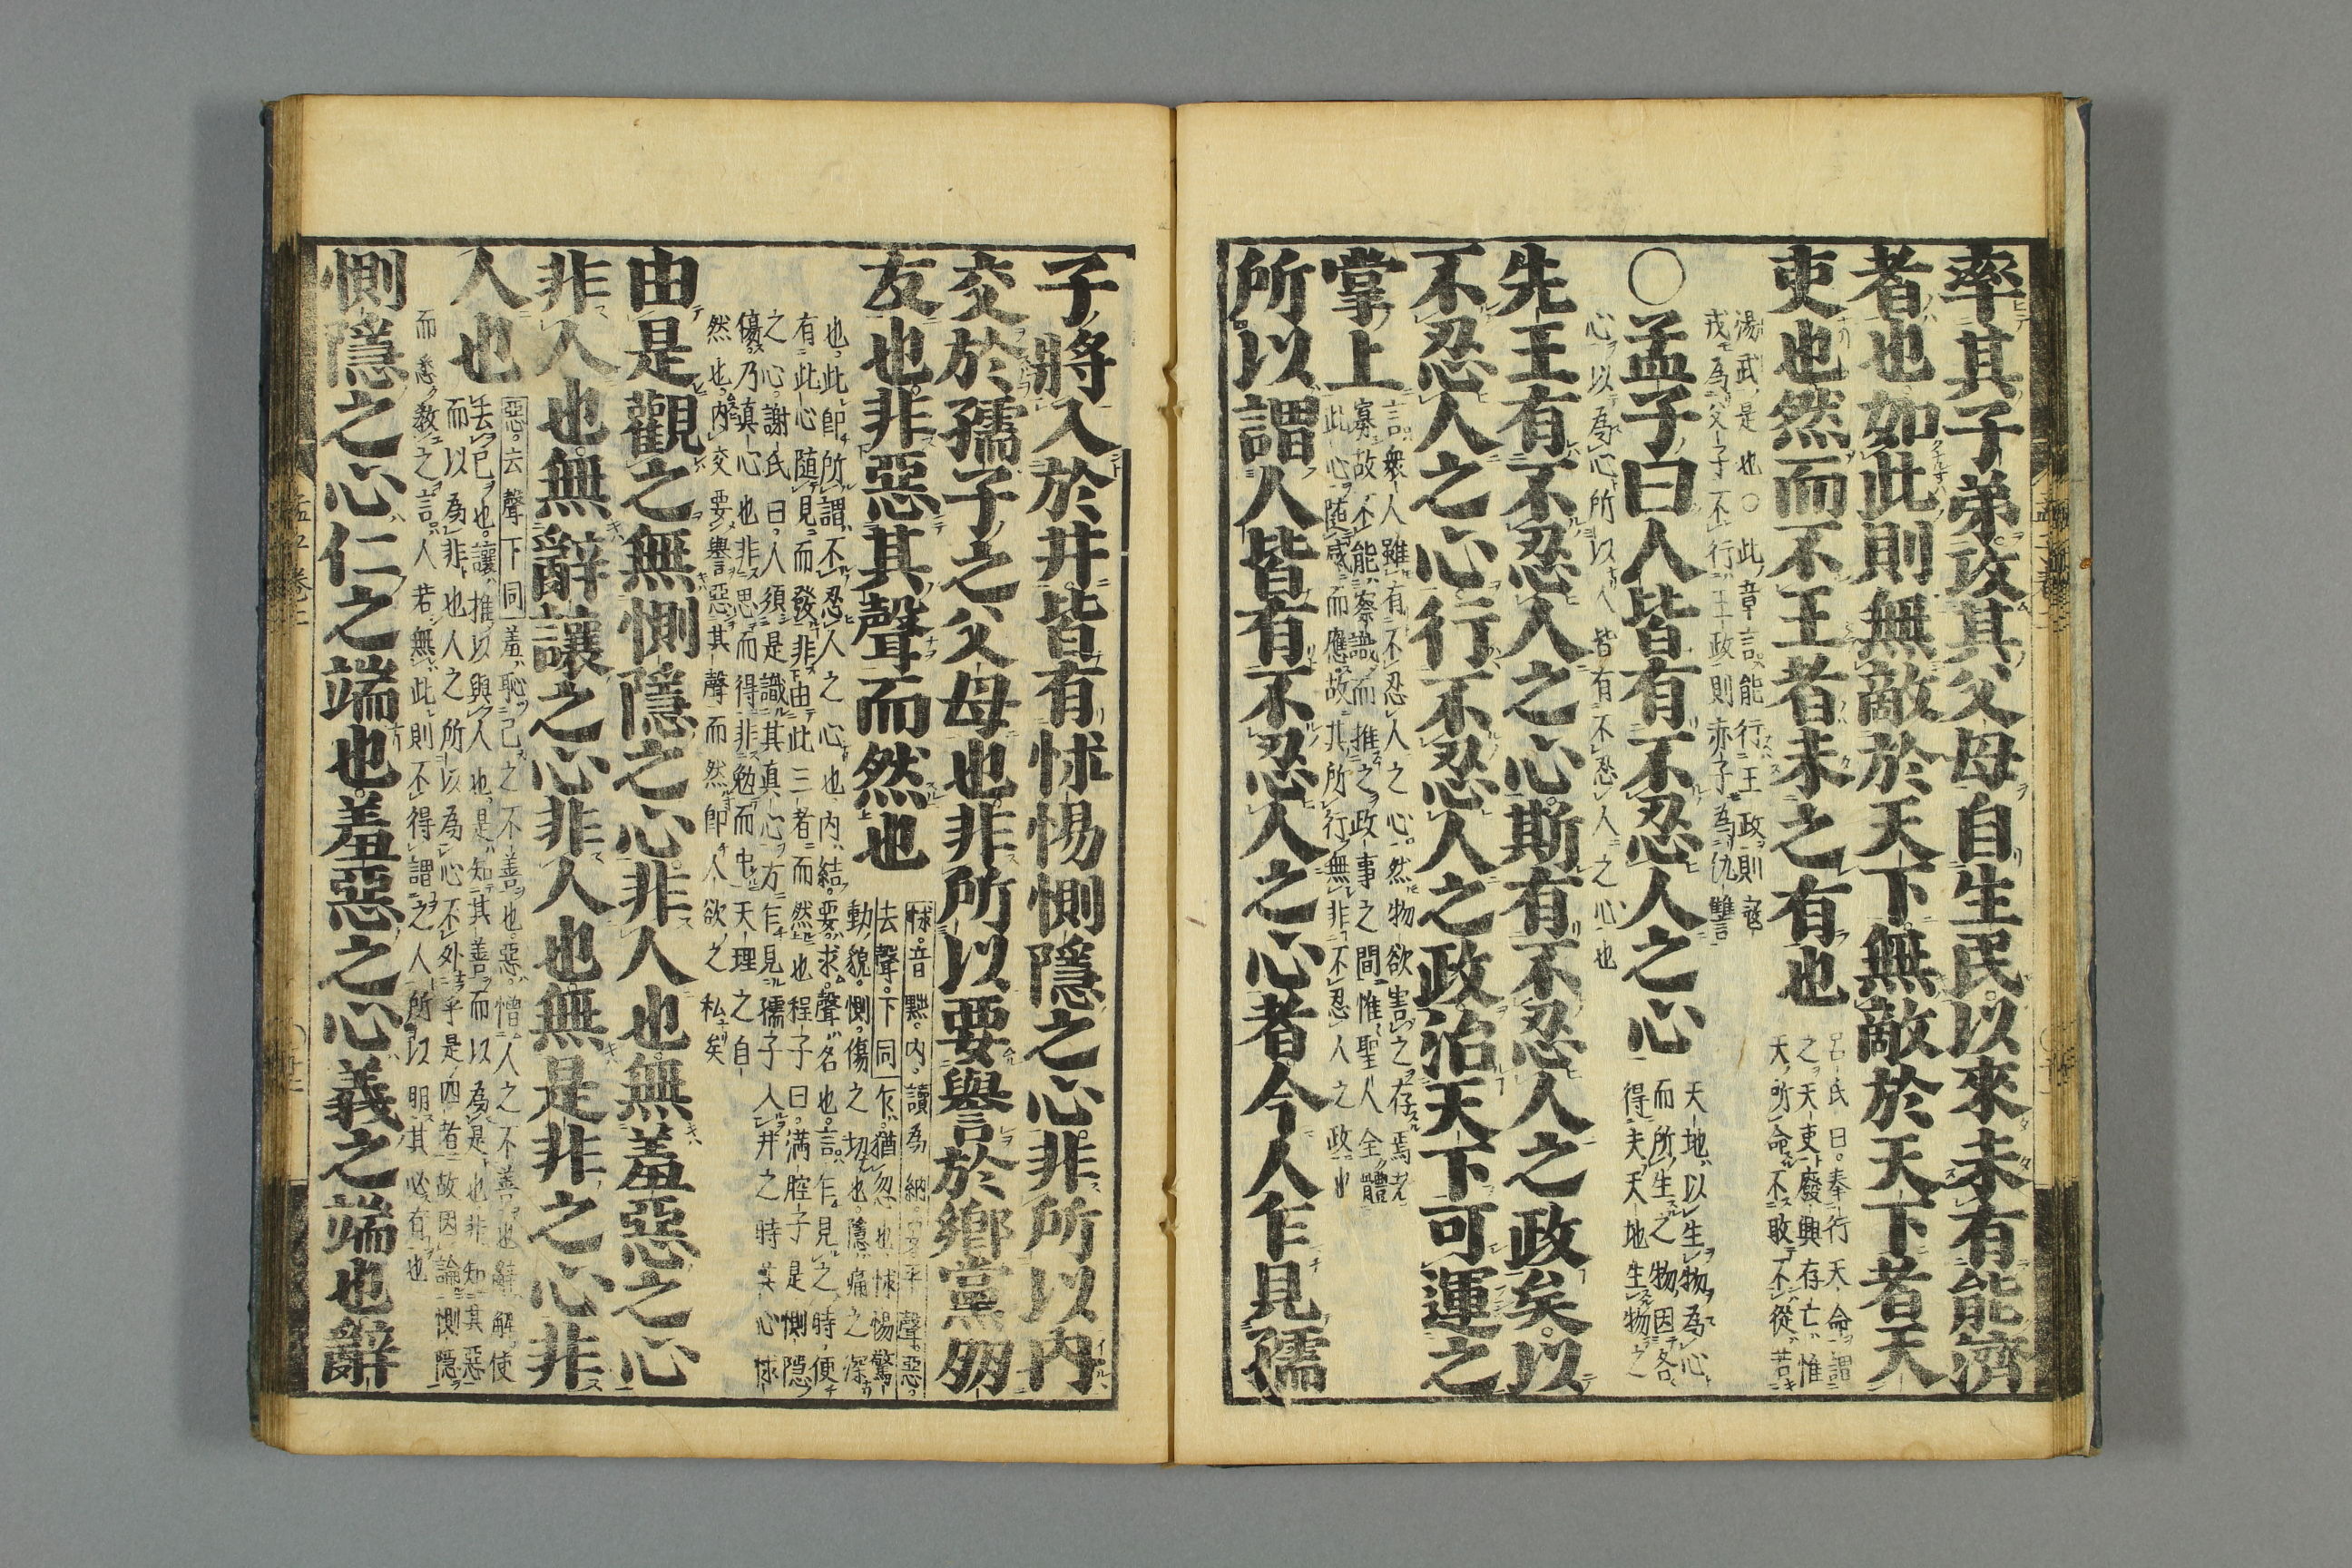 率其子弟攻其父母自生民以來未有能濟
者也如此則無敵於天下無敵於天下者天
吏也然而不王者未之有也
呂氏曰奉行天命謂
之天吏廢興存亡惟
天所命不敢不從若
湯武是也○此章言能行王政則寇
戎為父子不行王政則赤子為仇讐
○孟子曰人皆有不忍人之心
天地以生物為心
而所生之物因各
得夫天地生物之
心以為心所以人皆有不忍人之心也
先王有不忍人之心斯有不忍人之政矣以
不忍人之心行不忍人之政治天下可運之
掌上
言衆人雖有不忍人之心然物欲害之存焉者
寡故不能察識而推之政事之間惟聖人全體
此心随感而應故其所行無非不忍人之政也
所以謂人皆有不忍人之心者今人乍見孺
子將入於井皆有怵惕惻隱之心非所以内
交於孺子之父母也非所以要譽於鄉黨朋
友也非惡其聲而然也
怵音黜内讀為納要平聲惡
去聲下同乍猶忽也怵惕驚
動貌惻傷之切也隱痛之深
也此即所謂不忍人之心也内結要求聲名也言乍見之時便
有此心随見而發非由此三者而然也程子曰滿腔子是惻隱
之心謝氏曰人須是識其真心方乍見孺子入井之時其心怵
惕乃真心也非思而得非勉而中天理之自
然也内交要譽惡其聲而然即人欲之私矣
由是觀之無惻隱之心非人也無羞惡之心
非人也無辭讓之心非人也無是非之心非
人也
惡去聲下同羞恥己之不善也惡憎人之不善也辭解使
去己也讓推以與人也是知其善而以為是也非知其惡
而以為非也人之所以為心不外乎是四者故因論惻隱
而悉數之言人若無此則不得謂之人所以明其必有也
惻隱之心仁之端也羞惡之心義之端也辭
孟子卷三